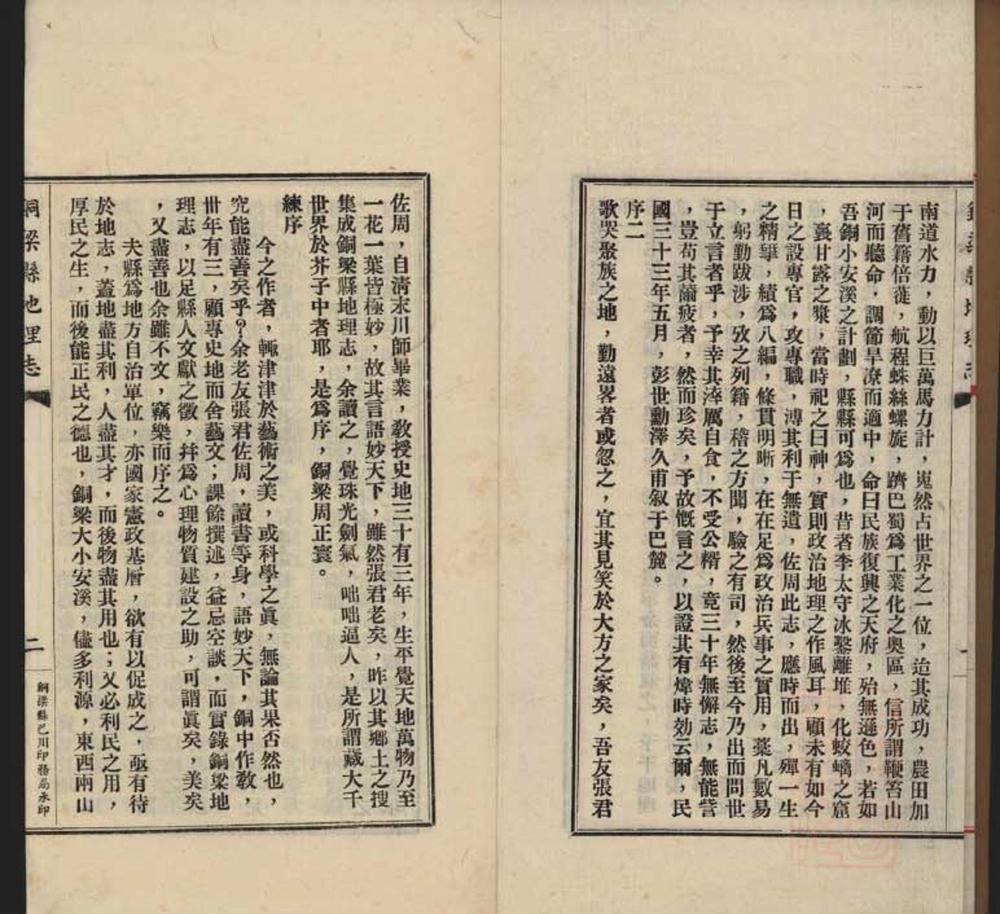 南道水力，動以巨萬馬力計，嵬然占世界之一位，迨其成功，農田加
于舊籍倍蓰，航程蛛絲螺旋，躋巴蜀爲工業化之奧區，信所謂鞭笞山
河而聽命，調節旱潦而適中，命曰民族復興之天府，殆無遜色，若如
吾銅小安溪之計劃，縣縣可爲也，昔者李太守冰鑿離堆，化蛟螭之窟
，裏甘露之漿，當時祀之曰神，實則政治地理之作風耳，顧未有如今
日之設專官，攻專職，溥其利于無遺，佐周此志，應時而出，殫一生
之精，續爲八編，條貫明晰，在在足爲政治兵事之實用，藁凡數易
，躬勤跋涉，攷之列籍，稽之方聞，驗之有司，然後至今乃出而問世
于立言者乎，予幸其滓厲自食，不受公糈，竟三十年無懈志，無能訾
，豈苟其薾疲者，然而珍矣，予故慨言之，以證其有煒時効云爾，民
國三十三年五月，彭世勳澤久甫叙于巴麓。
序二
歌哭聚族之地，勤遠畧者或忽之，宜其見笑於大方之家矣，吾友張君
佐周，自清末川師畢業，敎授史地三十有三年，生平覺天地萬物乃至
一花一葉皆極妙，故其言語妙天下，雖然張君老矣，昨以其鄉土之搜
集成銅梁縣地理志，余讀之，覺珠光劍氣，咄咄逼人，是所謂藏大千
世界於芥子中者耶，是爲序，銅梁周正寰。
練序
今之作者，輒津津於藝術之美，或科學之眞，無論其果否然也，
究能盡善矣乎？余老友張君佐周，讀書等身，語妙天下，銅中作敎，
卅年有三，顧專史地而舍藝文；課餘撰述，益忌空談，而實錄銅梁地
理志，以足縣人文獻之徵，幷爲心理物質建設之助，可謂眞矣，美矣
，又盡善也余雖不文，竊樂而序之。
夫縣爲地方自治單位，亦國家憲政基層，欲有以促成之，亟有待
於地志，蓋地盡其利，人盡其才，而後物盡其用也；又必利民之用，
厚民之生，而後能正民之德也，銅梁大小安溪，儘多利源，東西兩山
銅梁縣地理志
二
銅梁縣巴川印務局承印